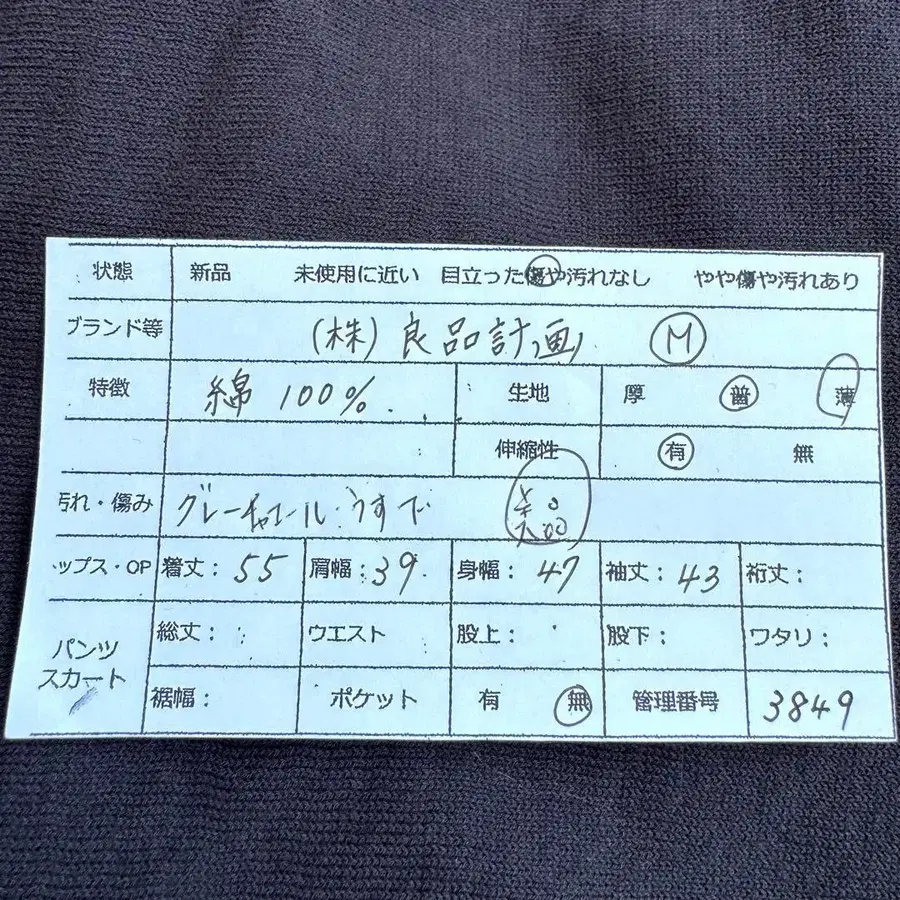 状態 新品 未使用に近い 目立った傷や汚れなし やや傷や汚れあり
ブランド等 (株)良品計画 M
特徴 綿 100% 生地 厚 普 薄
伸縮性 有 無
汚れ・傷み グレーチャコール うすで
ップス・OP 着丈: 55 肩幅: 39 身幅: 47 袖丈: 43 裄丈:
パンツ 総丈: ウエスト 股上: 股下: ワタリ:
スカート
裾幅: ポケット 有 無 管理番号 3849